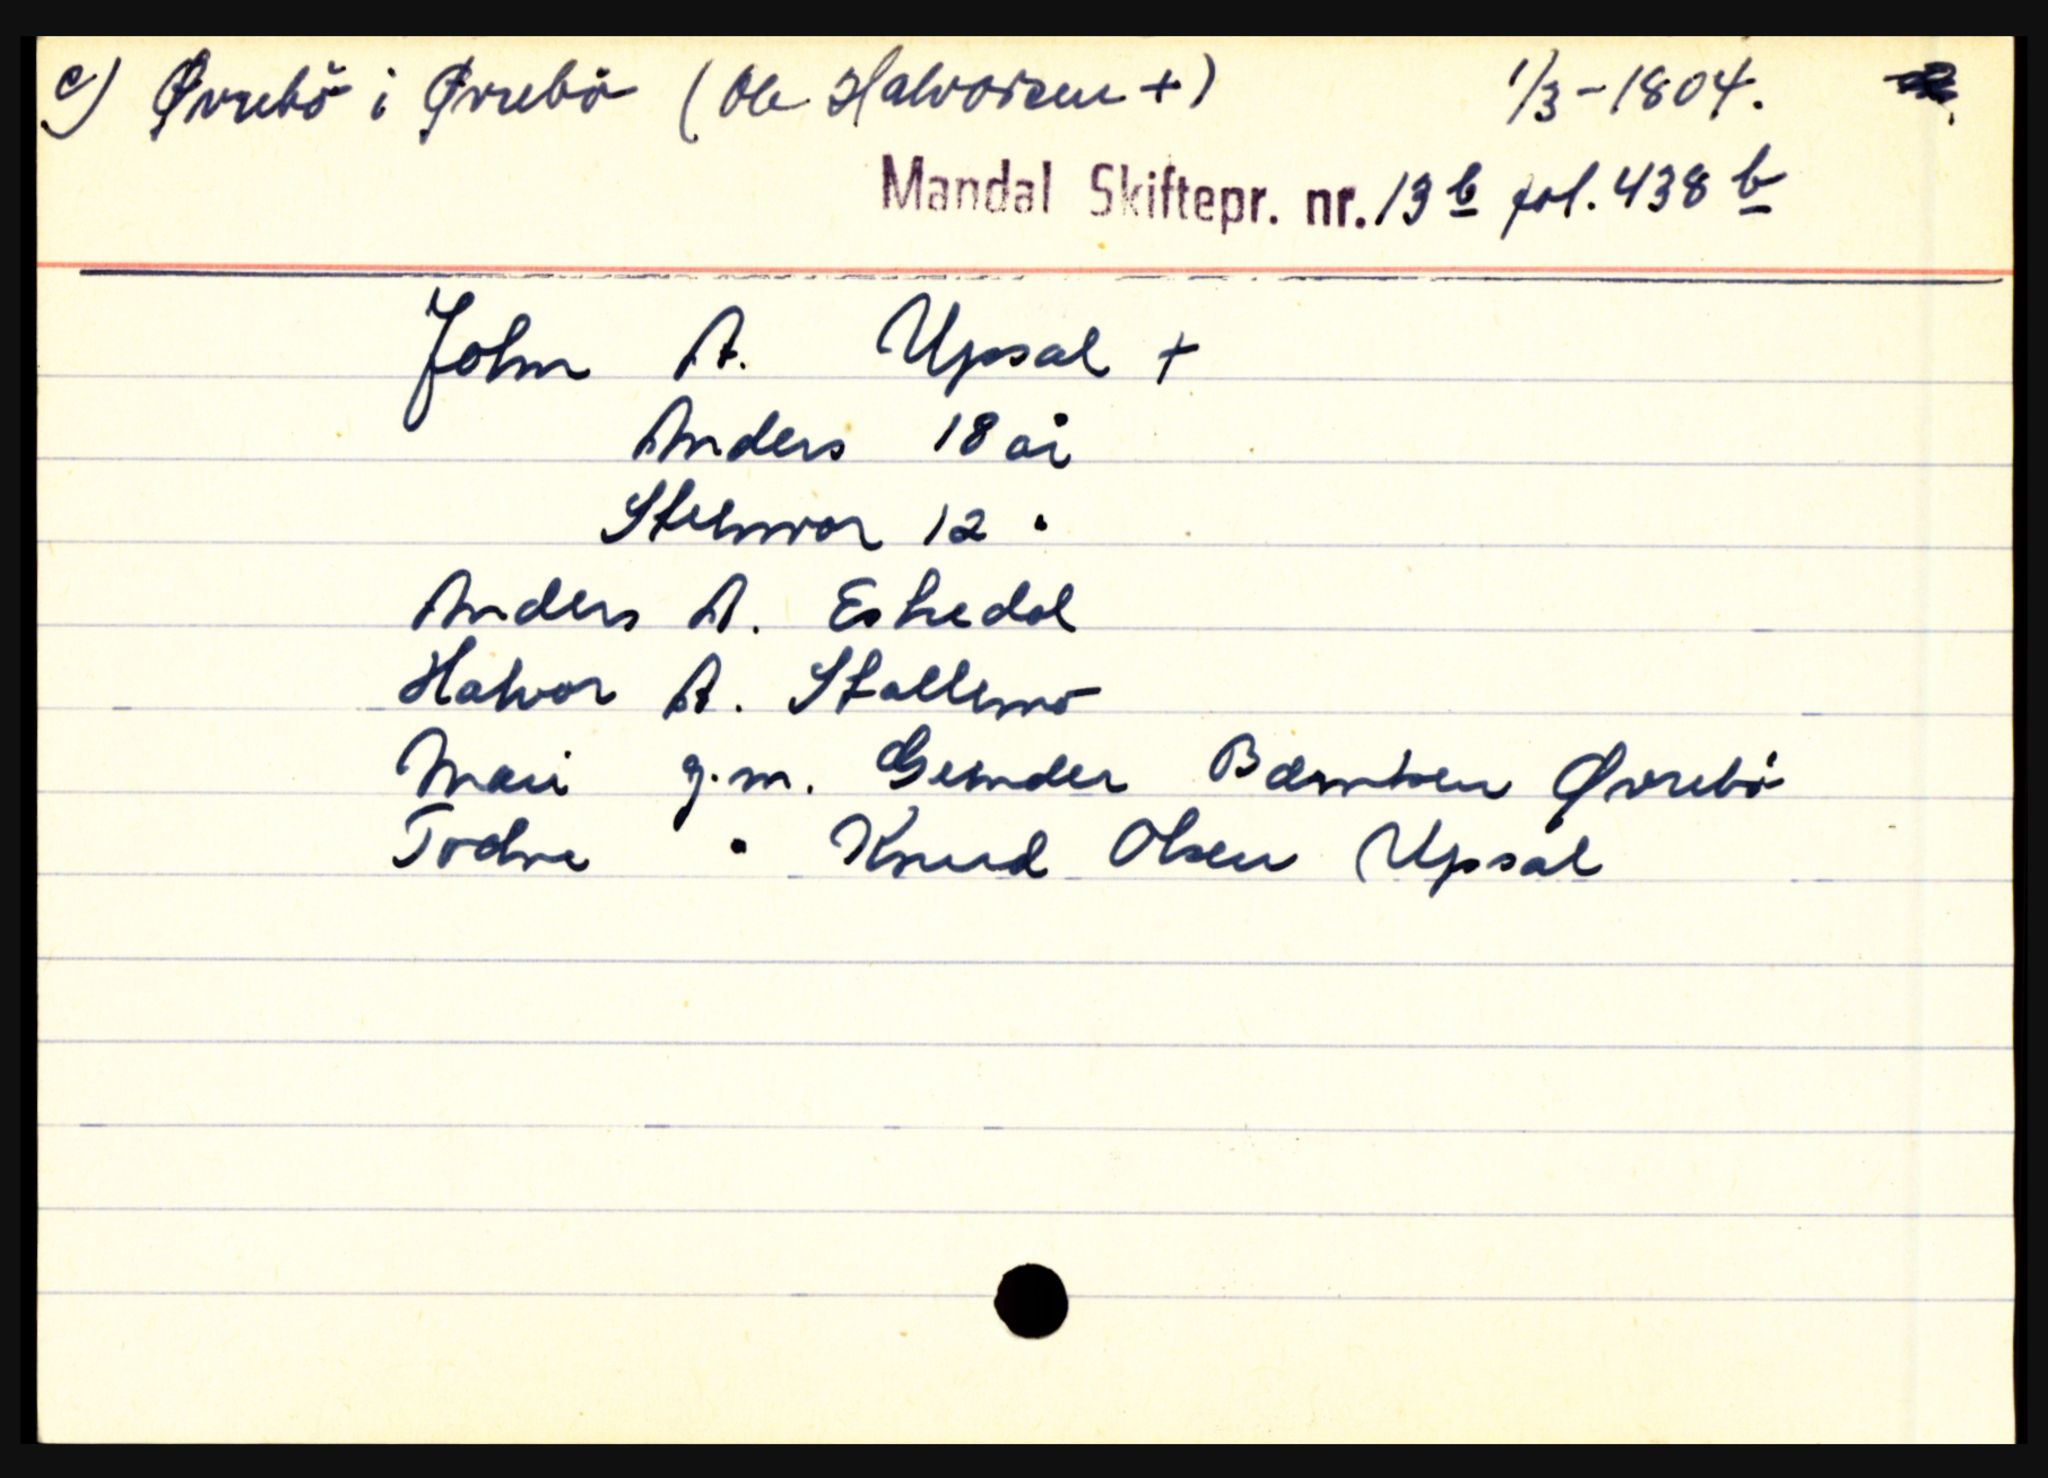 c) Øvrebö i Øvrebö (Ole Halvorsen +) 1/3-1804.
Mandal Skiftepr. nr. 13 b fol. 438 b
John A. Upsal +
Anders 18 år
Stenvor 12 "
Anders A. Eskedal
Halvor A. Stallemo
Mari g.m. Gunder Berntsen Øvrebö
Todne " Knud Olsen Upsal